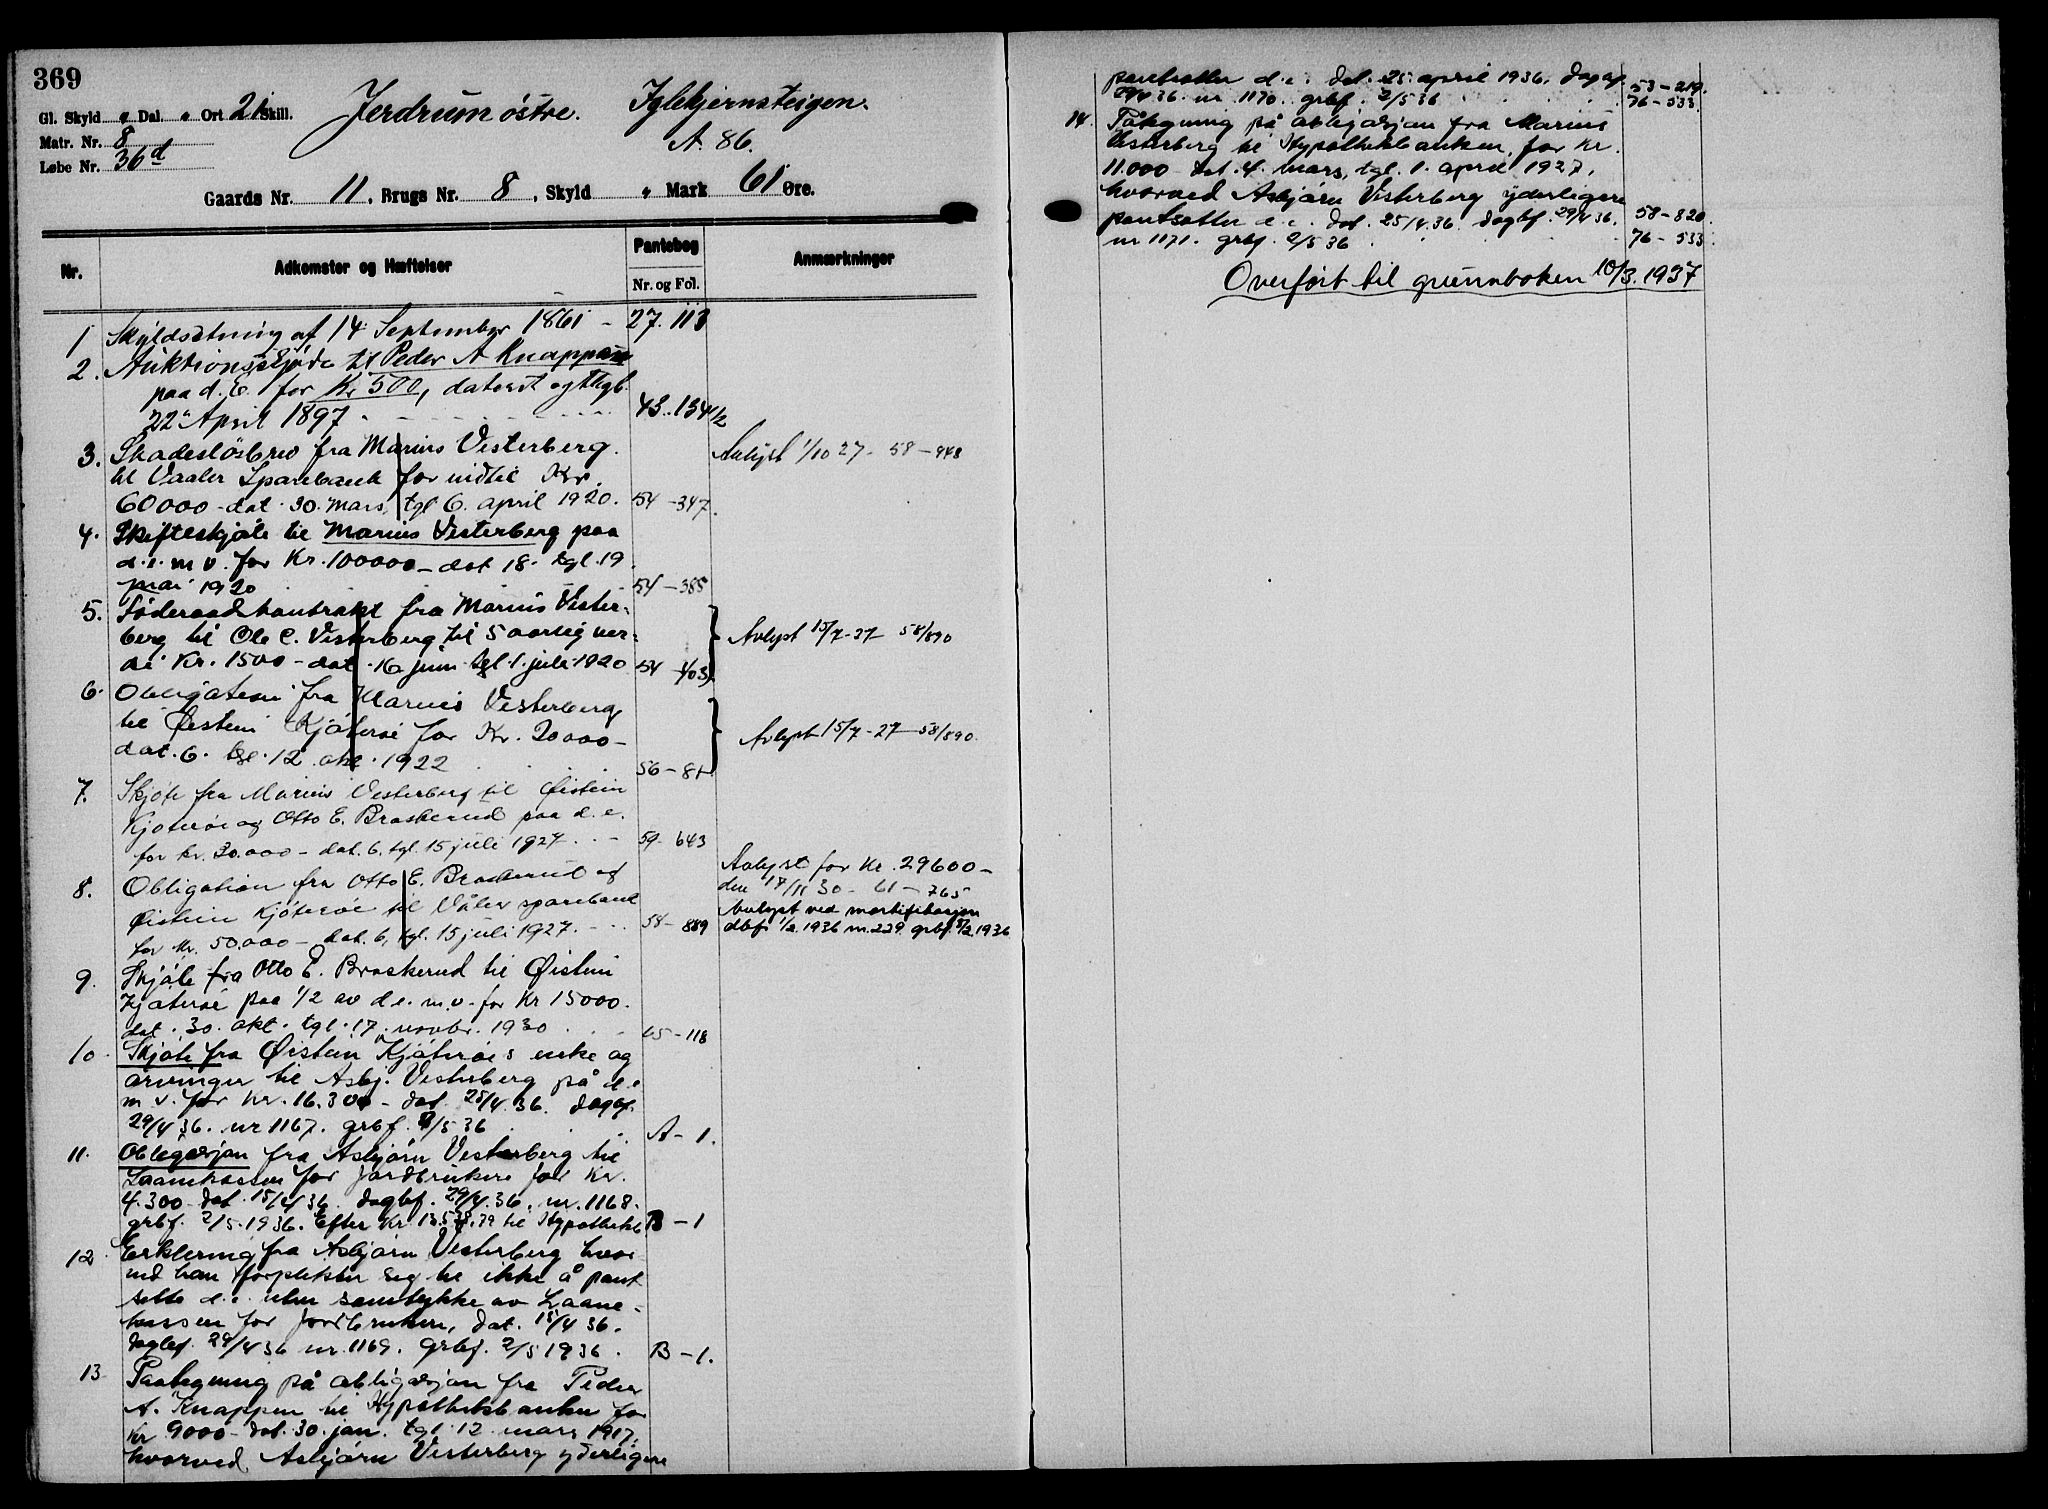 369
Gl. Skyld " Dal. " Ort 21 Skill.
Matr. Nr. 8
Løbe Nr. 36d
Jerdrum østre. Iglekjernsteigen.
A. 86.
Gaards Nr. 11, Brugs Nr. 8, Skyld " Mark 61 Øre.
Nr. Adkomster og Hæftelser Pantebog Nr. og Fol. Anmærkninger
1 Skyldsætning af 14 September 1861 - 27. 113
2. Auktionsskjøde til Peder A Knappen
paa d. E. for Kr 500, dateret og thgl.
22de April 1897 - 43. 134 1/2
3. Skadesløsbrev fra Marius Vesterberg
til Vaaler Sparebank for indtil Kr.
60000 - dat. 30. mars, tgl 6. april 1920. 54 - 347.
Avlyst 1/10 27 - 58 - 948
4. Skifteskjøte til Marius Vesterberg paa
d. e. m v. for Kr. 100000 - dat 18. tgl. 19
mai 1920 54 - 385
5. Føderaadkontrakt fra Marius Vester-
berg til Ole C. Vesterberg til 5 aarlig ver-
di Kr. 1500 - dat. 16 juni tgl. 1. juli 1920 54 - 403
Avlyst 15/7 - 27 58/890
6. Obligation fra Marius Vesterberg
til Øistein Kjøterøi for Kr. 20000 -
dat. 6. tgl. 12. okt. 1922 56 - 81
Avlyst 15/7 - 27 - 58/890.
7. Skjøte fra Marius Vesterberg til Øistein
Kjøterøi og Otto E. Braskerud paa d. e.
for kr. 30.000 - dat. 6, tgl. 15 juli 1927 . . - 59 - 643
8. Obligation fra Otto E. Braskerud og
Øistein Kjøterøi til Våler sparebank
for kr. 50.000 - dat. 6, tgl. 15 juli 1927. - 58 - 889
Avlyst for Kr. 29600 -
den 17/11 30 - 61 - 765
Avlyst ved mortifikasjon
dbf. 1/2. 1936 nr. 229. grbf. 5/2. 1936
9. Skjøte fra Otto E. Braskerud til Øistein
Kjøterøi paa 1/2 av d. e. m. v. for Kr 15000.
dat. 30. okt. tgl. 17. novbr. 1930 65 - 118
10. Skjøte fra Øistein Kjøterøis enke og
arvinger til Asbj. Vesterberg på d. e
m. v. for Kr. 16.300 - dat. 25/4. 36. dagbf.
29/4 36. nr 1167. grbf. 2/5 36 A - 1.
11. Obligasjon fra Asbjørn Vesterberg til
Laanekassen for Jordbrukere for Kr.
4.300 - dat. 15/4 36. dagbf. 29/4. 36. nr. 1168.
grbf. 2/5. 1936. Efter Kr 13.538,79 til Hypothekb. B - 1
12. Erklæring fra Asbjørn Vesterberg hvor
ved han forplikter sig til ikke å pant
sette d. e. uten samtykke av Laane-
kassen for Jordbrukere, dat. 15/4 36.
dagbf. 29/4 36 nr. 1169. grbf. 2/5 1936. B - 1.
13 Paategning på obligasjon fra Peder
A. Knappen til Hypothekbanken for
Kr 9000 - dat. 30. jan. tgl. 12. mars 1917,
hvorved Asbjørn Vesterberg yderligere
pantsetter d. e. dat. 25. april 1936. dagbf.
29/4 36. nr 1170. grbf. 2/5 36 53 - 219. 76 - 533
14. Påtegning på obligasjon fra Marius
Vesterberg til Hypothekbanken, for Kr.
11.000 dat. 4. mars, tgl. 1. april 1927,
hvorved Asbjørn Vesterberg yderligere
pantsetter d. e. dat. 25/4. 36. dagbf. 29/4 36. 58 - 820.
nr 1171. grbf. 2/5 36 76 - 533.
Overført til grunnboken 10/3. 1937